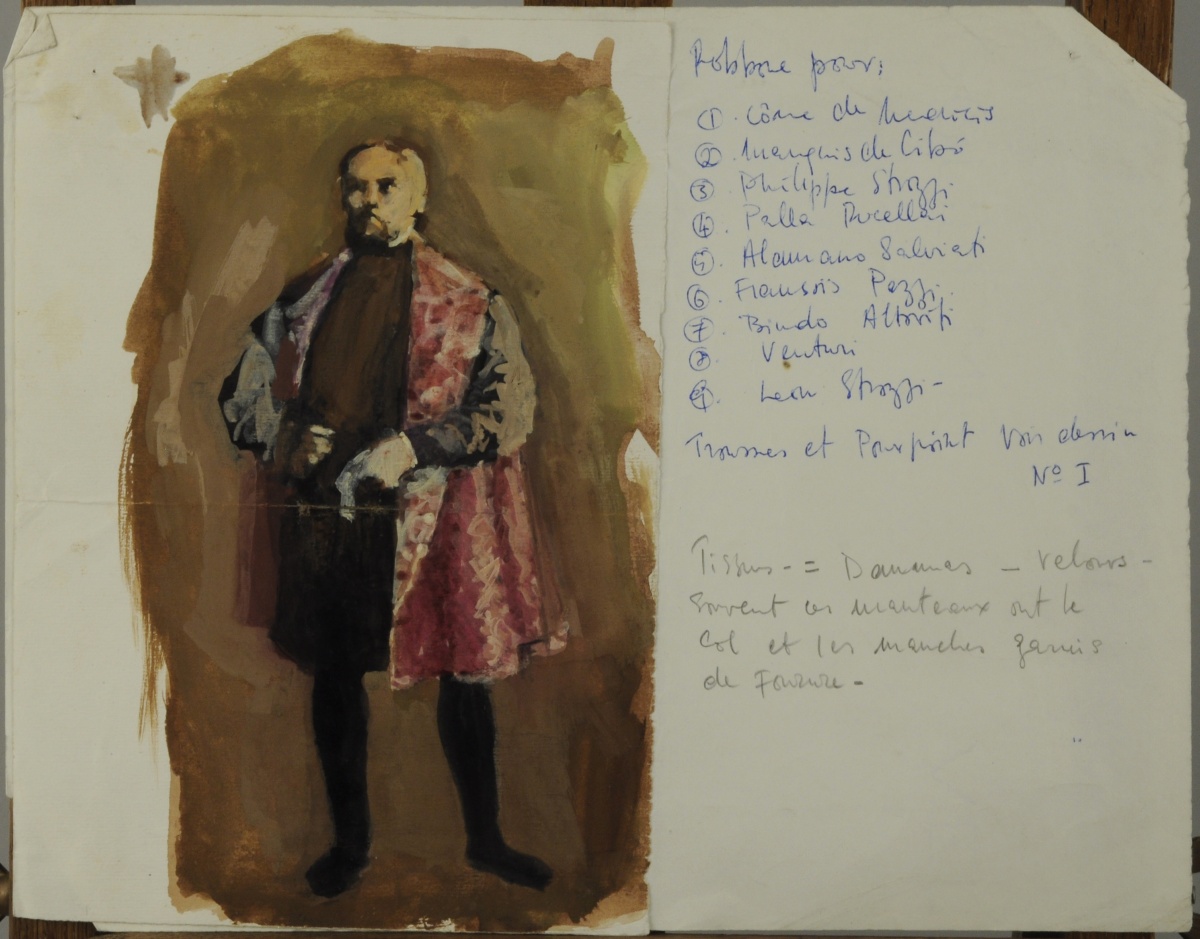 Robbone pour:
① Côme de Medicis
② Marquis de Cibó
③ Philippe Strozzi
④ Palla Rucellai
⑤ Alamano Salviati
⑥ François Pazzi
⑦ Bindo Altoviti
⑧ Venturi
⑨ Leon Strozzi -
Trousses et Pourpoint Voir dessin
Nº I
Tissus - = Dammas - Velours -
Souvent ces manteaux ont le
Col et les manches garnis
de Fourrure -